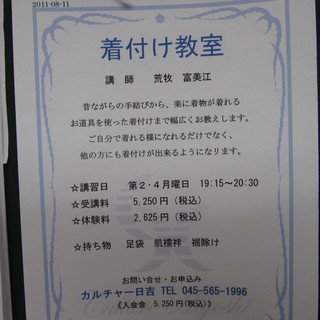 2011-08-11
着付け教室
講 師 荒牧 富美江
昔ながらの手結びから、楽に着物が着れる
お道具を使った着付けまで幅広くお教えします。
ご自分で着れる様になれるだけでなく、
他の方にも着付けが出来るようになります。
☆講習日 第2・4月曜日 19:15～20:30
☆受講料 5,250円（税込）
☆体験料 2,625円（税込）
☆持ち物 足袋 肌襦袢 裾除け
お問い合せ・お申込み
カルチャー日吉 TEL 045-565-1996
《入会金 5,250円(税込)》